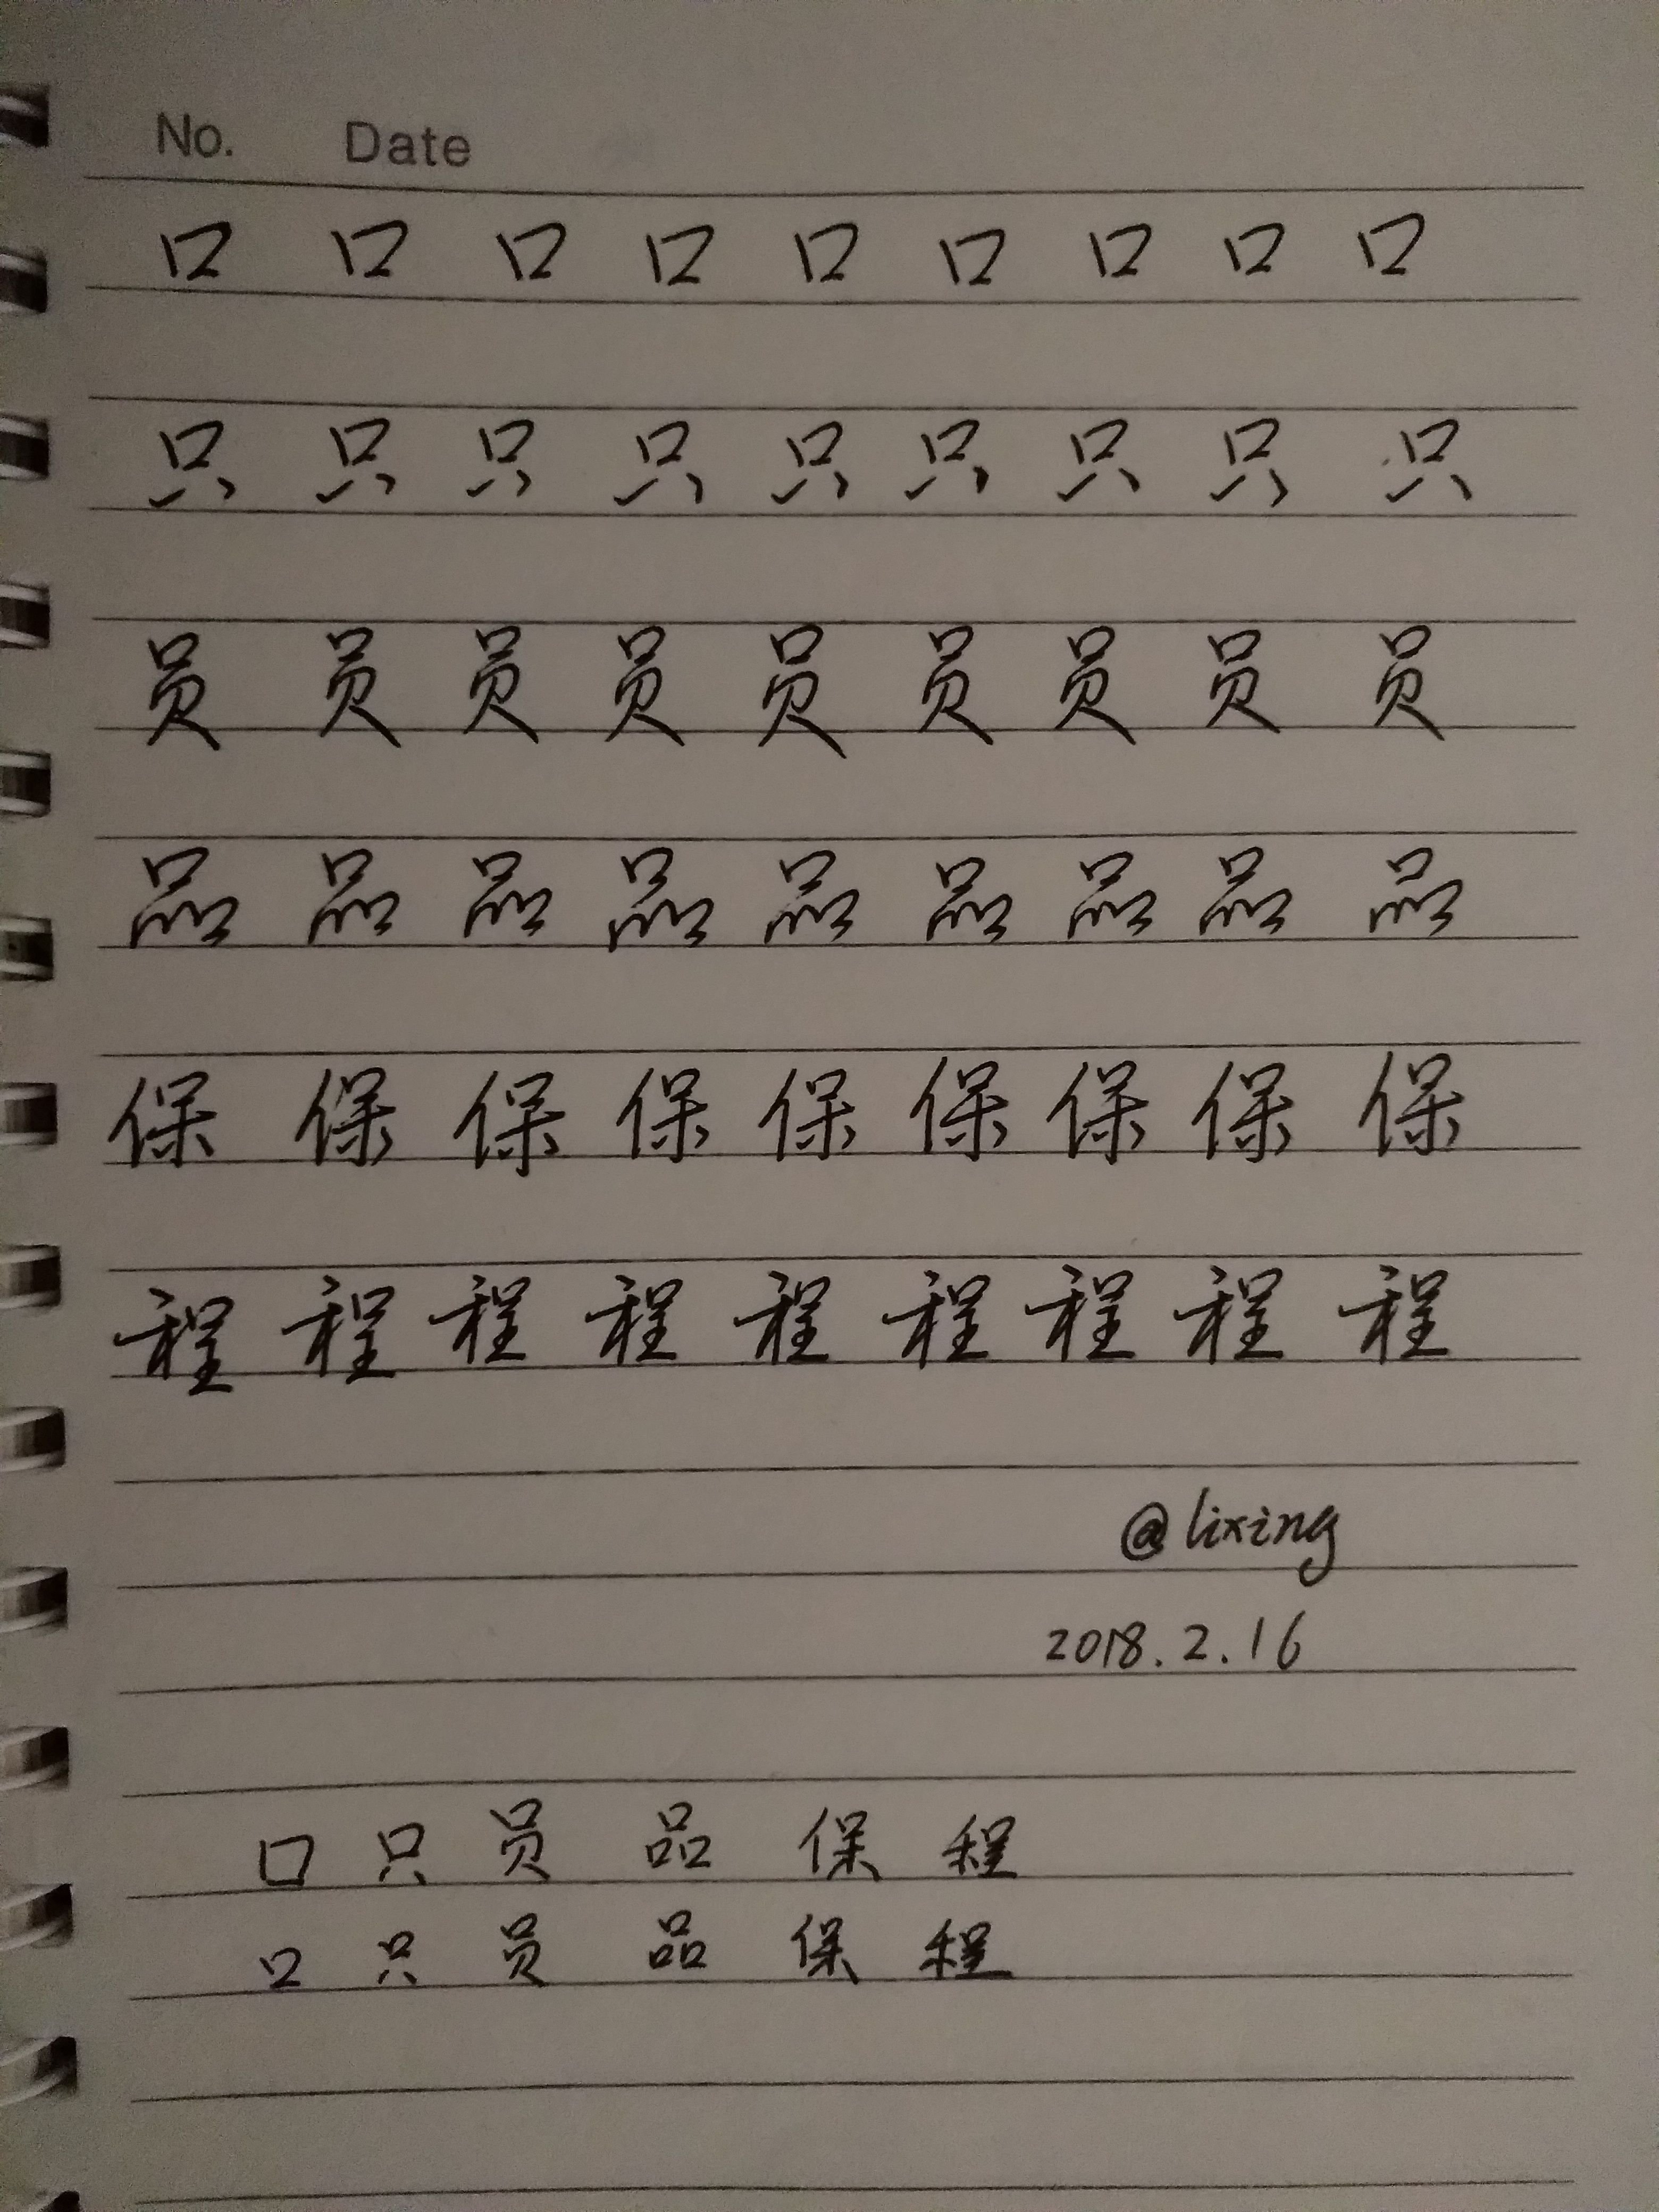 No. Date
口 口 口 口 口 口 口 口 口
只 只 只 只 只 只 只 只 只
员 员 员 员 员 员 员 员 员
品 品 品 品 品 品 品 品 品
保 保 保 保 保 保 保 保 保
程 程 程 程 程 程 程 程 程
@lixing
2018.2.16
口 只 员 品 保 程
口 只 员 品 保 程